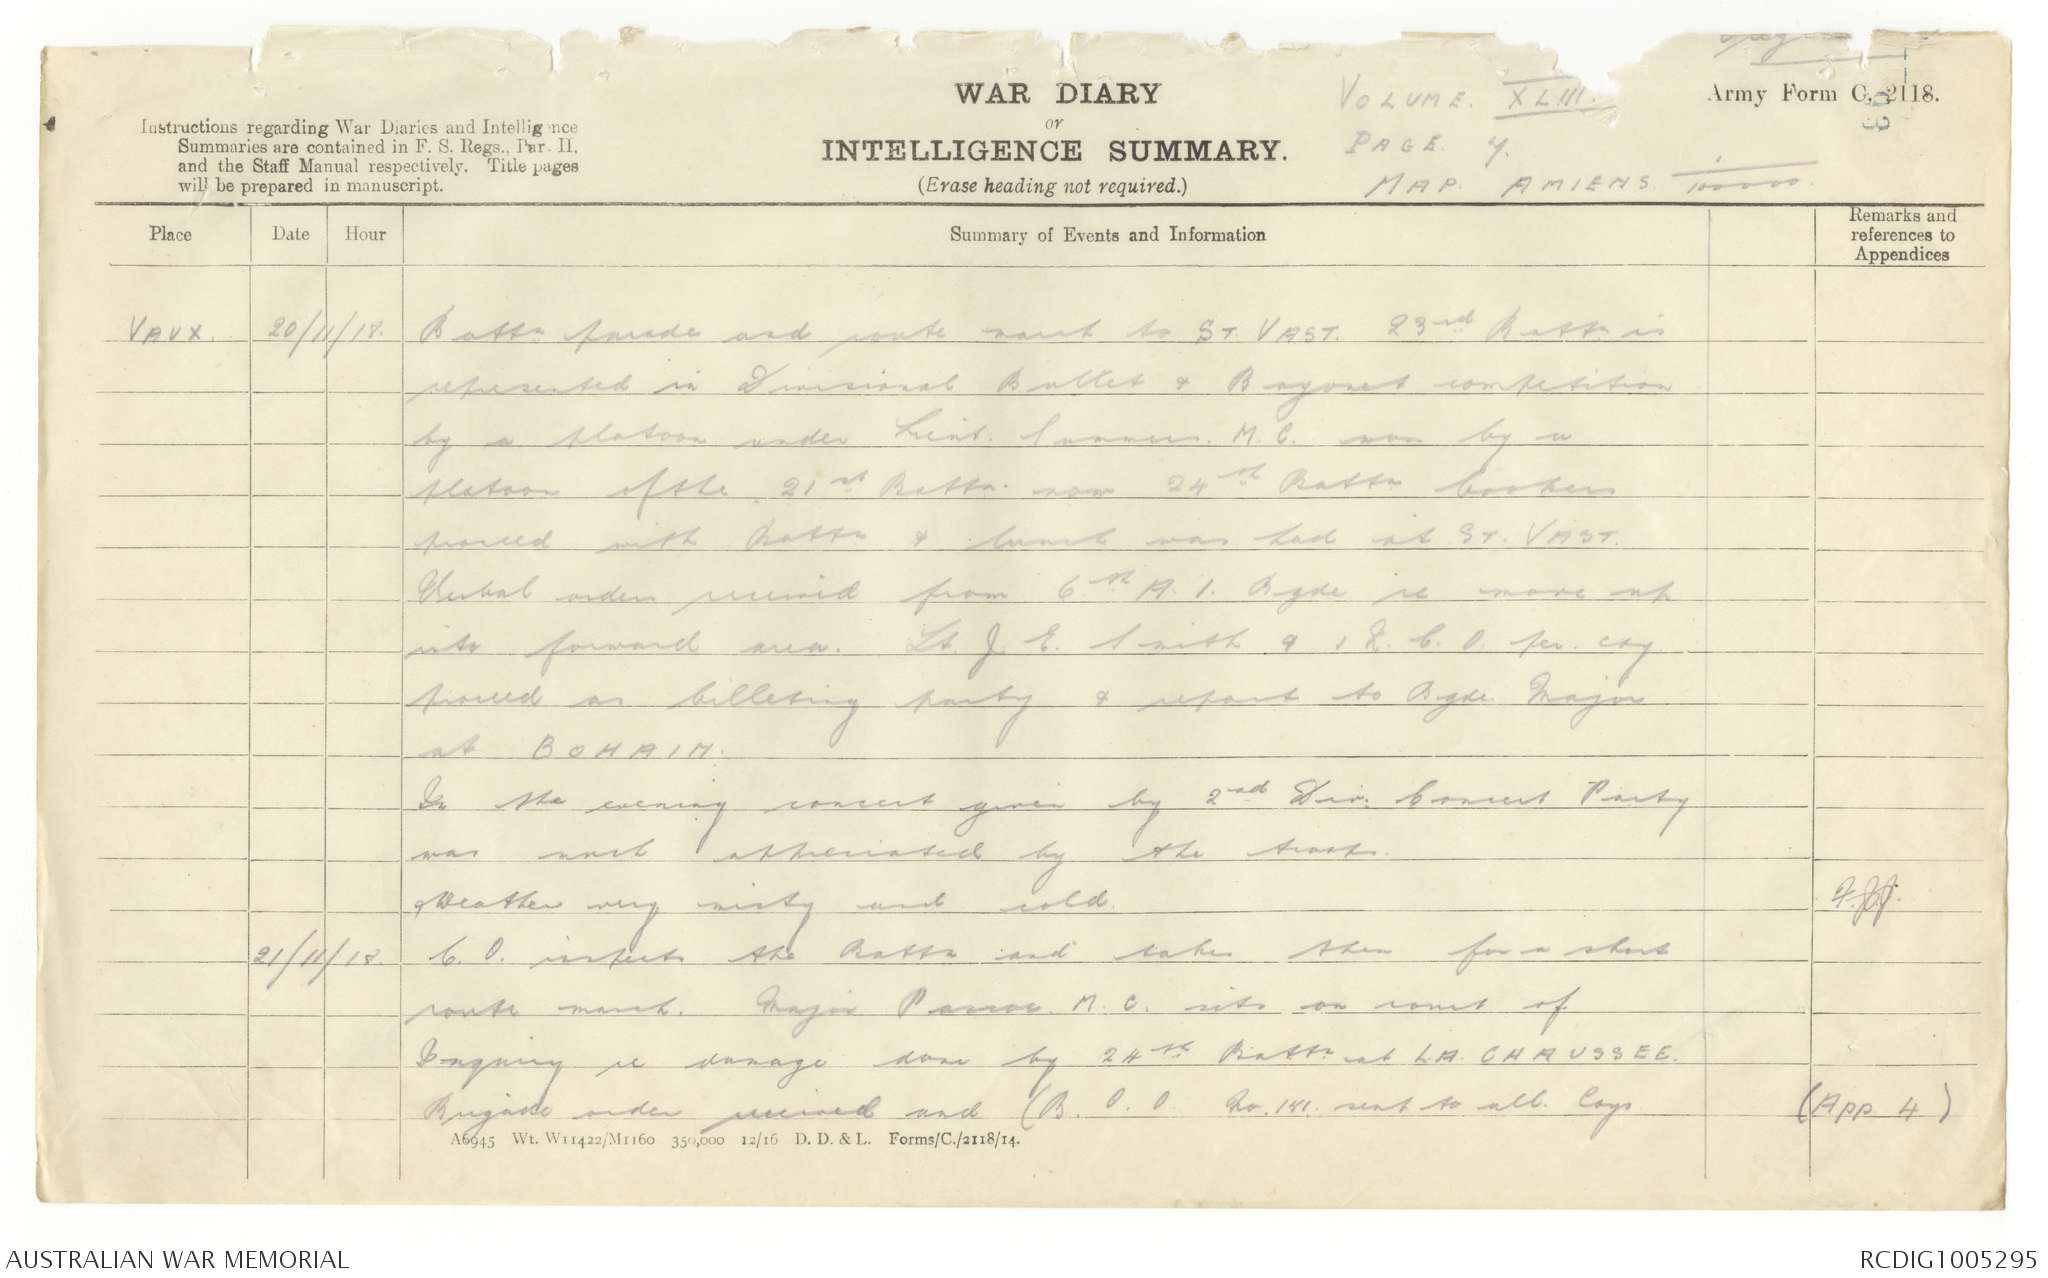 WAR DIARY
or
INTELLIGENCE SUMMARY.
(Erase heading not required.)
Instructions regarding War Diaries and Intelligence
Summaries are contained in F. S. Regs., Par. II,
and the Staff Manual respectively. Title pages
will be prepared in manuscript.
VOLUME. XLIII.
PAGE. 7.
MAP. AMIENS. 1/100000.
Army Form C. 2118.
Place Date Hour Summary of Events and Information Remarks and references to Appendices
VAUX. 20/11/18. Battn parade and route march to ST. VAST. 23rd Battn is
represented in Divisional Bullet & Bayonet competition
by a platoon under Lieut. M.C. won by a
platoon of the 21st Battn. now 24th Battn Cookers
proceed with Battn & lunch was had at ST. VAST.
Verbal orders received from 6th A. I. Bgde re move up
into forward area. Lt. J. E. Smith & 1 N. C. O. per. coy
proceed as billeting party & report to Bgde Major
at BOHAIN.
In the evening concert given by 2nd Div. Concert Party
was much appreciated by the troops.
Weather very misty and cold.
21/11/18. C. O. inspects the Battn and takes them for a short
route march. Major Pascoe. M. C. sits on court of
Inquiry re damage done by 24th Battn at LA. CHAUSSEE.
Brigade order received and (B. O. O. No. 181. sent to all. Coys. (App 4)
A6945 Wt. W11422/M1160 350,000 12/16 D. D. & L. Forms/C./2118/14.
AUSTRALIAN WAR MEMORIAL RCDIG1005295